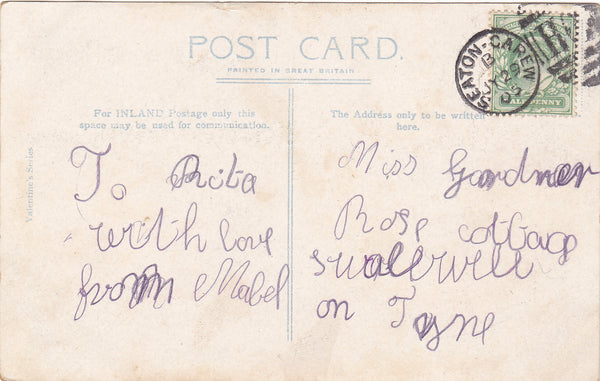 POST CARD.
PRINTED IN GREAT BRITAIN
For INLAND Postage only this
space may be used for communication.
The Address only to be written
here.
Valentine's Series
SEATON-CAREW
HALFPENNY
To Rita
with love
from Mabel
Miss Gardner
Rose cottage
swallwell
on Tyne